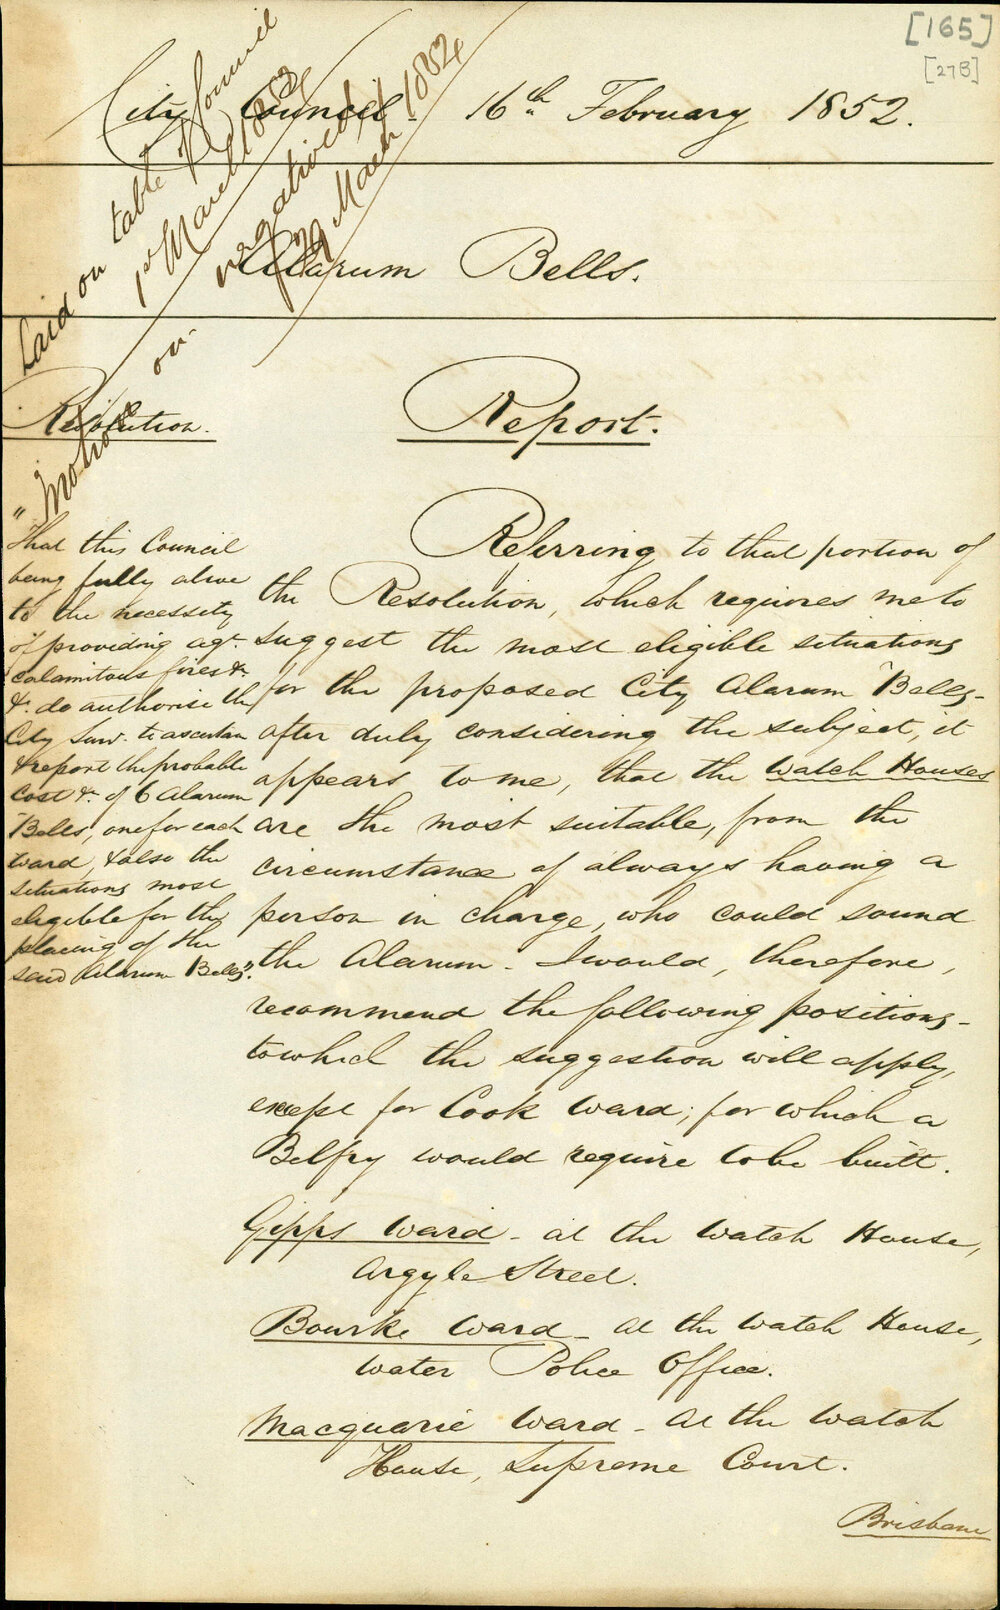 [165]
[27B]
City Council 16th February 1852.
Laid on table of Council
1st March 1852
Motion on
negatived
29 March 1852
Alarum Bells.
Resolution.
Report.
"That this Council
being fully alive
to the necessity
of providing agt.
calamitous fires &c.
&c. do authorise the
City Surv. to ascertain
& report the probable
Cost &c. of 6 Alarum
Bells, one for each
Ward, & also the
situations most
eligible for the
placing of the
said Alarum Bells".
Referring to that portion of
the Resolution, which requires me to
suggest the most eligible situations
for the proposed City Alarum Bells-
after duly considering the subject, it
appears to me, that the Watch Houses
are the most suitable, from the
circumstance of always having a
person in charge, who could sound
the Alarum - I would, therefore,
recommend the following positions-
to which the suggestion will apply,
except for Cook Ward; for which a
Belfry would require to be built.
Gipps Ward - at the Watch House,
Argyle Street.
Bourke Ward - At the Watch House,
Water Police Office.
Macquarie Ward - At the Watch
House, Supreme Court.
Brisbane